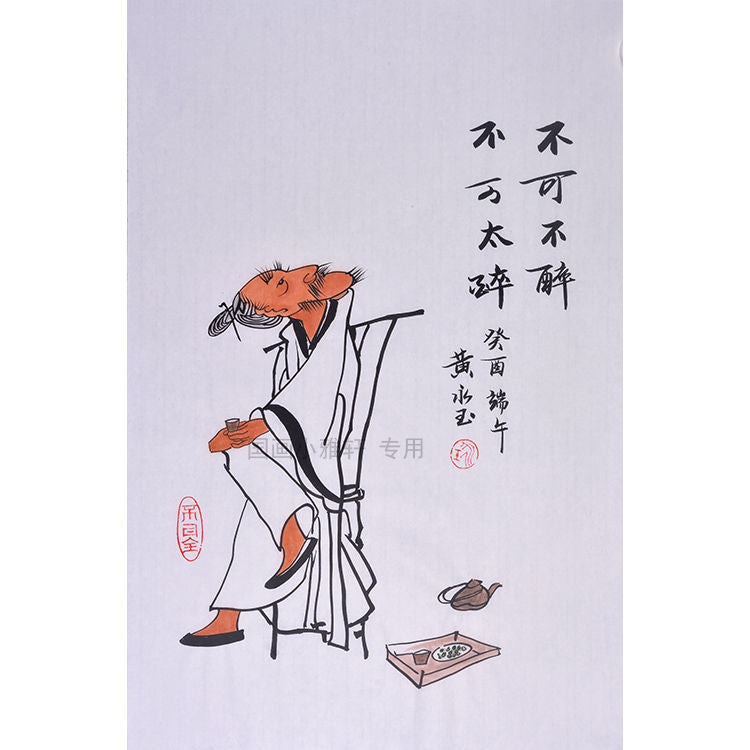 不可不醉
不可太醉
癸酉端午
黄永玉
国画小雅轩 专用